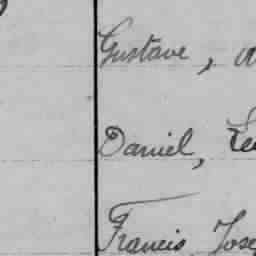 Gustave,
Daniel,
Francis